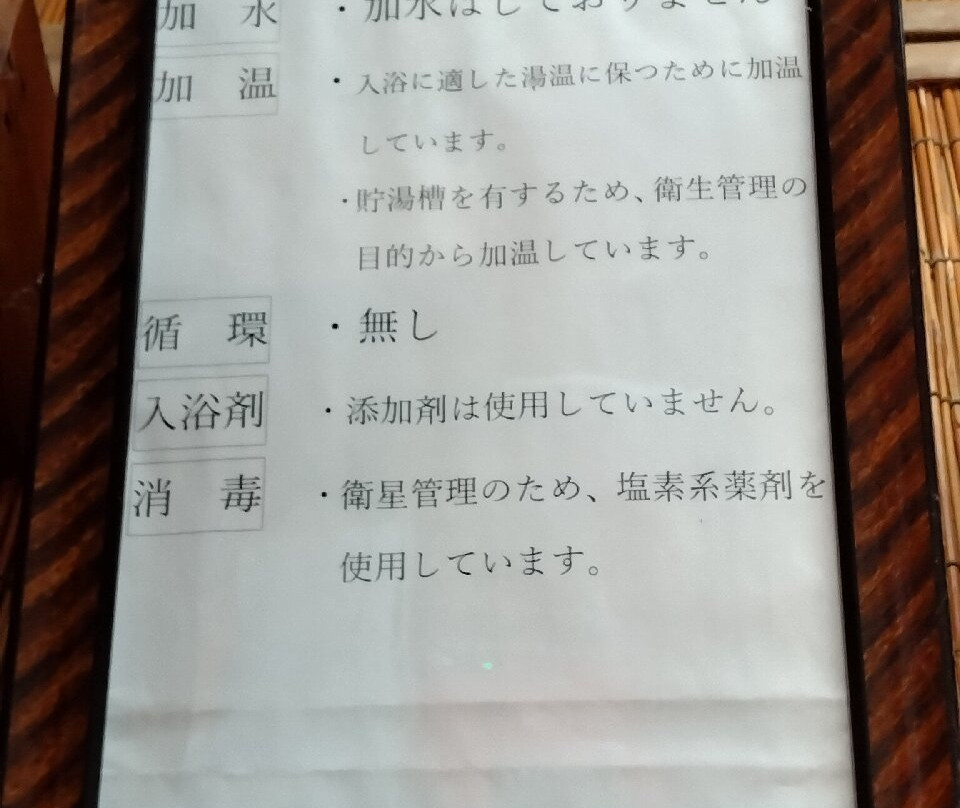 加　水　・加水はしておりません
加　温　・入浴に適した湯温に保つために加温
しています。
・貯湯槽を有するため、衛生管理の
目的から加温しています。
循　環　・無し
入浴剤　・添加剤は使用していません。
消　毒　・衛星管理のため、塩素系薬剤を
使用しています。